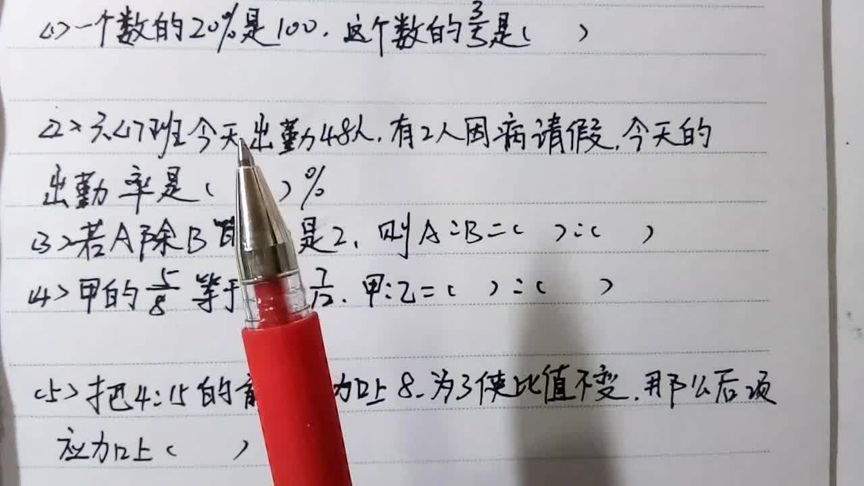 (1)一个数的20%是100.这个数的3/5是( )
(2)六(1)班今天出勤48人.有2人因病请假.今天的
出勤率是( )%
(3)若A除B 是2.则A:B=( ):( )
(4)甲的5/8等于 .甲:乙=( ):( )
(5)把4:15的 加上8.为了使比值不变.那么后项
应加上( )